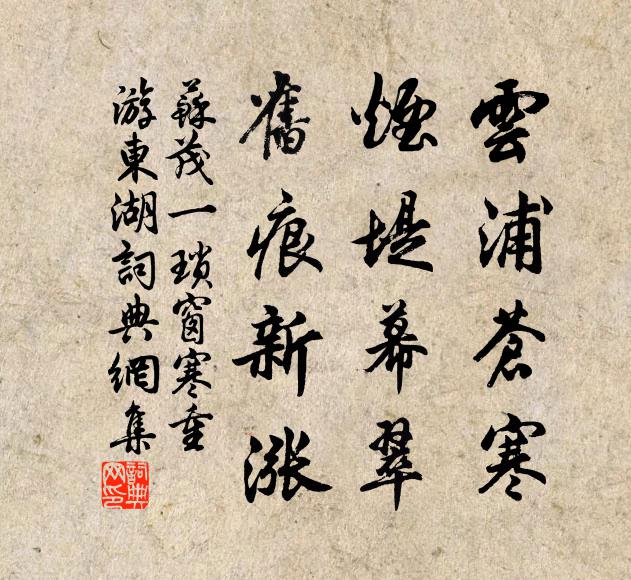 雲浦蒼寒
煙堤幕翠
舊痕新漲
蘇茂一瑣窗寒重
游東湖詞典網集
詞典網印